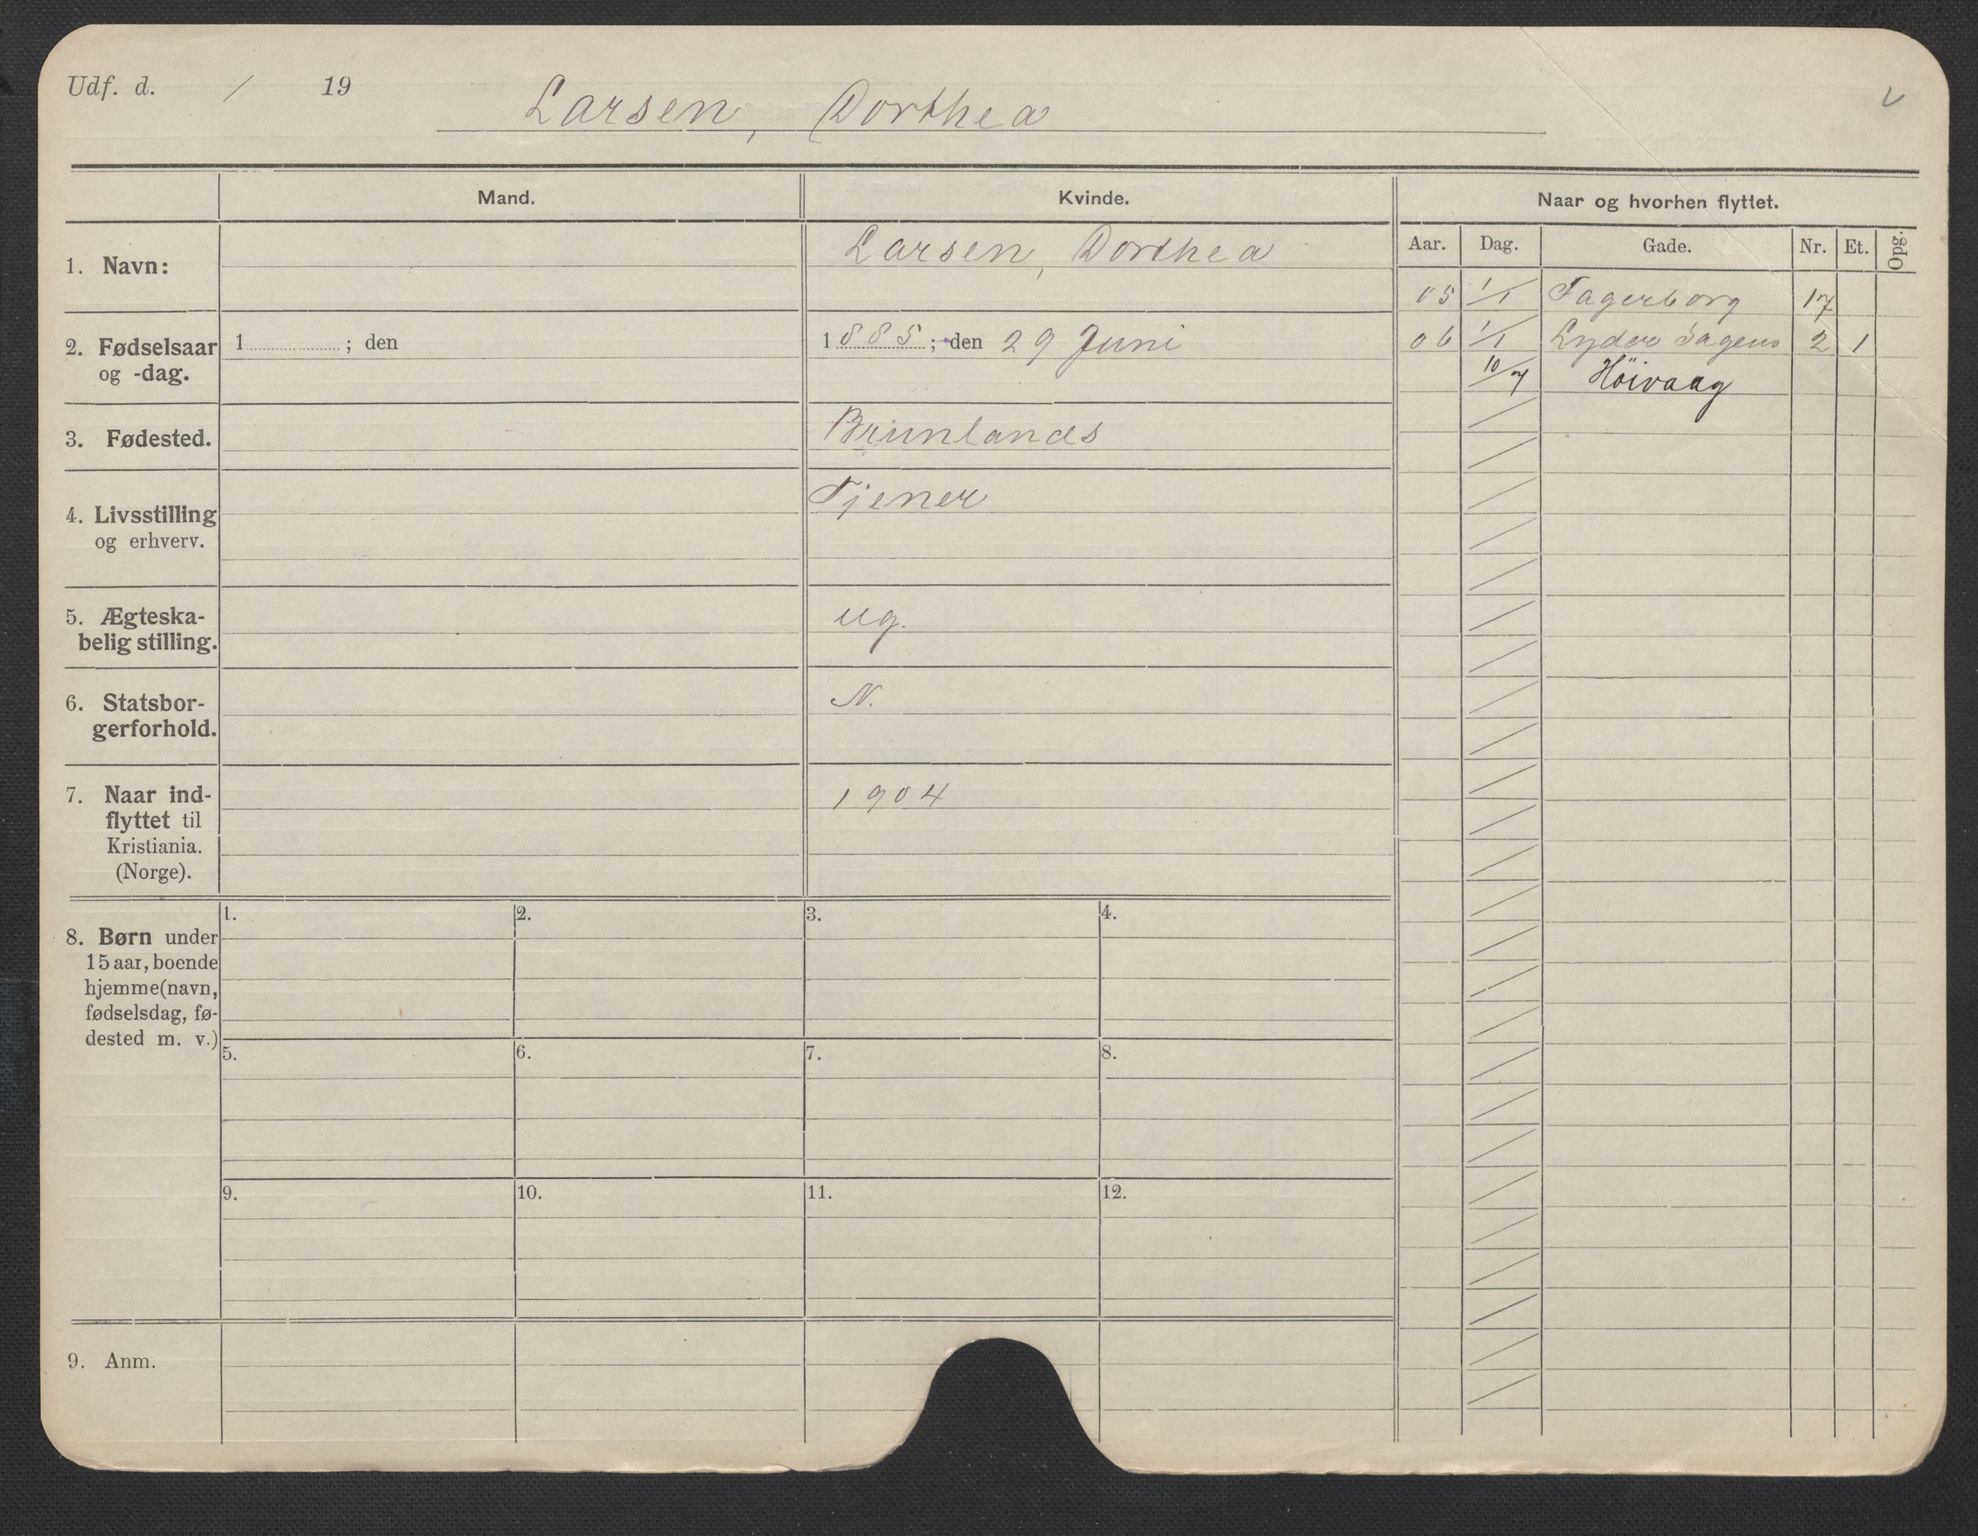 Udf. d. / 19
Larsen, Dorthea
Mand.
Kvinde.
Naar og hvorhen flyttet.
Aar. Dag. Gade. Nr. Et. Opg.
1. Navn:
Larsen, Dorthea
05 1/1 Fagerborg 17
2. Fødselsaar
og -dag.
1 ; den
1885; den 29 Juni
06 1/1 Lyder Sagens 2 1
10/7 Höivaag
3. Fødested.
Brunlands
4. Livsstilling
og erhverv.
Tjener
5. Ægteska-
belig stilling.
ug.
6. Statsbor-
gerforhold.
N.
7. Naar ind-
flyttet til
Kristiania.
(Norge).
1904
8. Børn under
15 aar, boende
hjemme (navn,
fødselsdag, fø-
dested m. v.)
1. 2. 3. 4.
5. 6. 7. 8.
9. 10. 11. 12.
9. Anm.